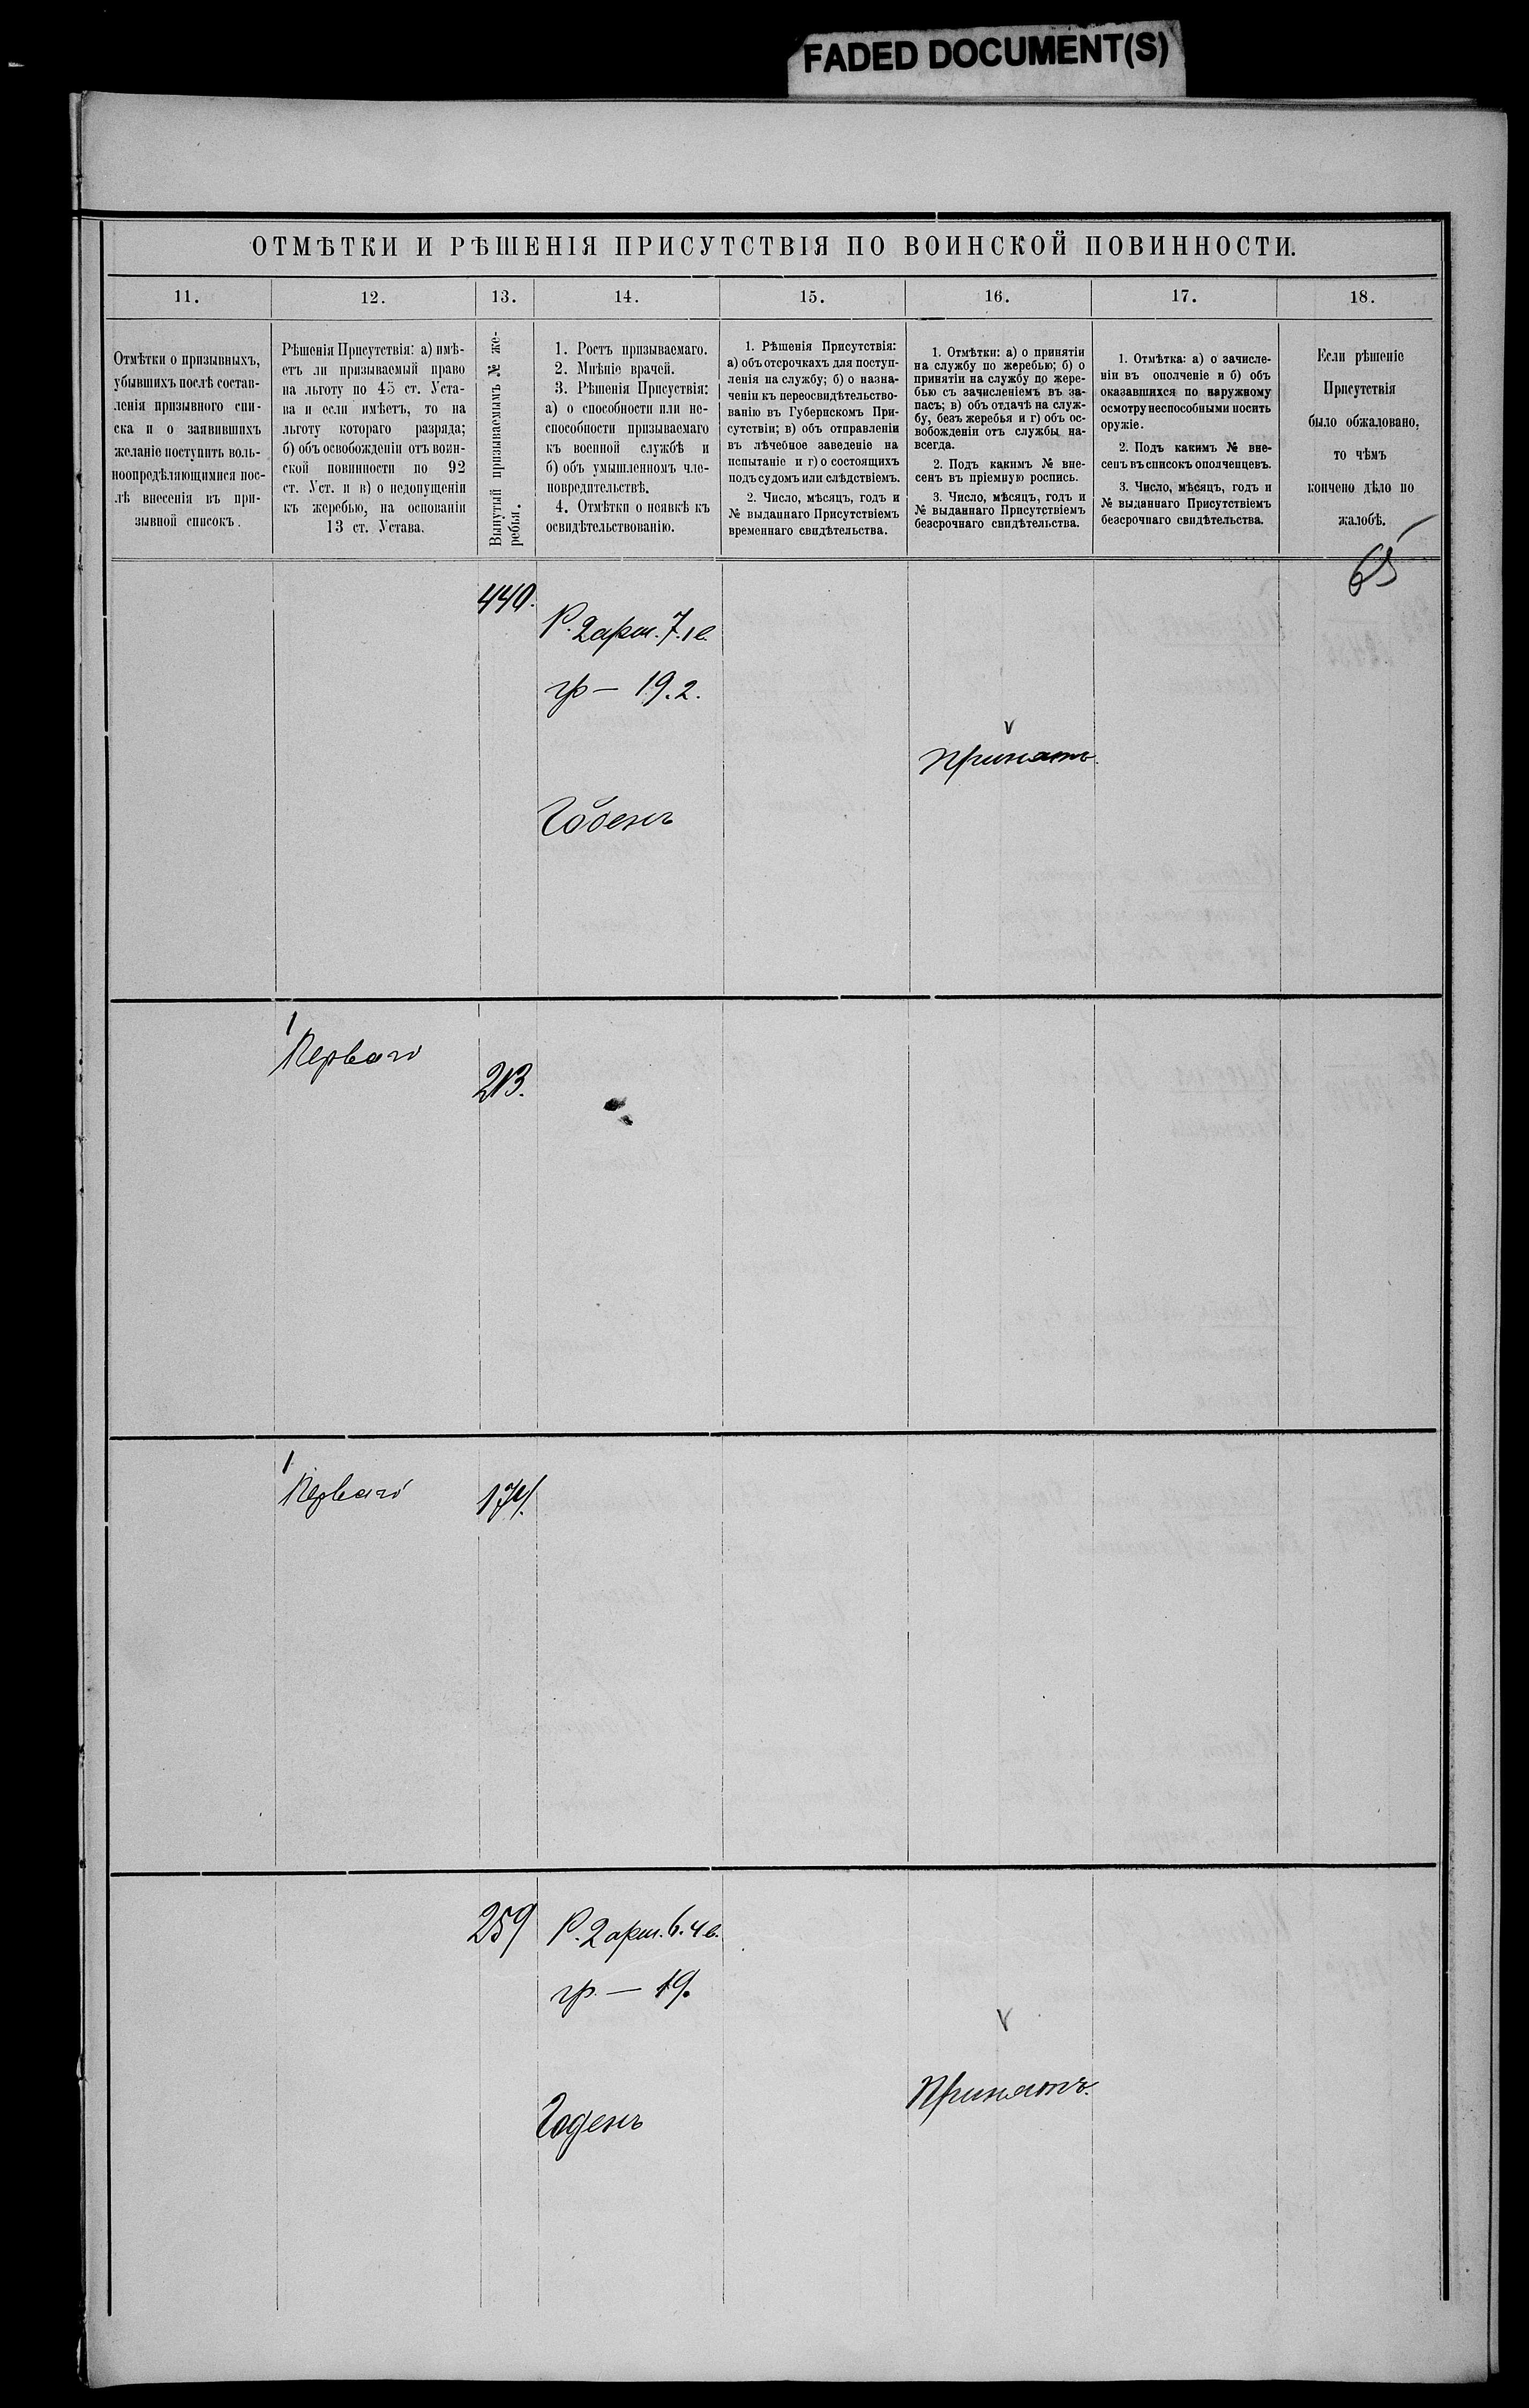 FADED DOCUMENT(S)
ОТМѢТКИ И РѢШЕНІЯ ПРИСУТСТВІЯ ПО ВОИНСКОЙ ПОВИННОСТИ.
11.
12.
13.
14.
15.
16.
17.
18.
Отмѣтки о призывныхъ,
убывшихъ послѣ состав-
ленія призывного спи-
ска и о заявившихъ
желаніе поступить воль-
ноопредѣляющимися пос-
лѣ внесенія въ при-
зывной списокъ.
Рѣшенія Присутствія: а) имѣ-
етъ ли призываемый право
на льготу по 45 ст. Уста-
ва и если имѣетъ, то на
льготу котораго разряда;
б) объ освобожденіи отъ воин-
ской повинности по 92
ст. Уст. и в) о недопущеніи
къ жеребью, на основаніи
13 ст. Устава.
Вынутый призываемымъ № же-
ребья.
1. Ростъ призываемаго.
2. Мнѣніе врачей.
3. Рѣшенія Присуствія:
а) о способности или не-
способности призываемаго
къ военной службѣ и
б) объ умышленномъ чле-
новредительствѣ.
4. Отмѣтки о неявкѣ къ
освидѣтельствованію.
1. Рѣшенія Присутствія:
а) объ отсрочкахъ для поступ-
ленія на службу; б) о назна-
ченіи къ переосвидѣтельство-
ванію въ Губернскомъ При-
сутствіи; в) объ отправленіи
въ лѣчебное заведеніе на
испытаніе и г) о состоящихъ
подъ судомъ или слѣдствіемъ.
2. Число, мѣсяцъ, годъ и
№ выданнаго Присутствіемъ
временнаго свидѣтельства.
1. Отмѣтки: а) о принятіи
на службу по жеребью; б) о
принятіи на службу по жере-
бью съ зачисленіемъ въ за-
пасъ; в) объ отдачѣ на служ-
бу, безъ жеребья и г) объ ос-
вобожденіи отъ службы на-
всегда.
2. Подъ какимъ № вне-
сенъ въ пріемную роспись.
3. Число, мѣсяцъ, годъ и
№ выданнаго Присутствіемъ
безсрочнаго свидѣтельства.
1. Отмѣтка: а) о зачисле-
ніи въ ополченіе и б) объ
оказавшихся по наружному
осмотру неспособными носить
оружіе.
2. Подъ какимъ № вне-
сенъ въ списокъ ополченцевъ.
3. Число, мѣсяцъ, годъ и
№ выданнаго Присутствіемъ
безсрочнаго свидѣтельства.
Если рѣшеніе
Присутствія
было обжаловано,
то чѣмъ
кончено дѣло по
жалобѣ.
65
440.
Р. 2 арш. 7. 1 в.
гр — 19. 2.
Годенъ
Принятъ.
1
Перваго
213.
1
Перваго
174.
259
Р. 2 арш. 6. 4 в.
гр. — 19.
Годенъ
Принятъ.